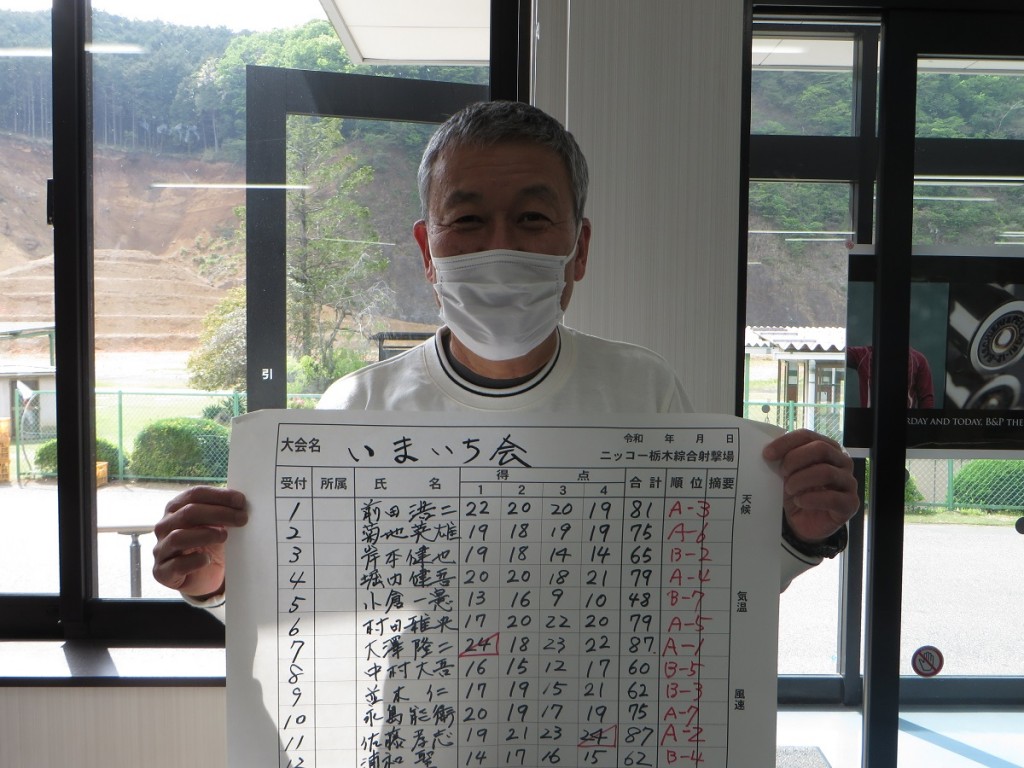 引
大会名 いまいち会 令和 年 月 日
ニッコー栃木綜合射撃場
受付 所属 氏 名 得 点 合計 順位 摘要
1 2 3 4
1 前田 浩二 22 20 20 19 81 A-3
2 菊地英雄 19 18 19 19 75 A-6
3 岸本健也 19 18 14 14 65 B-2
4 堀内健吾 20 20 18 21 79 A-4
5 小倉一晃 13 16 9 10 48 B-7
6 村田雅央 17 20 22 20 79 A-5
7 大澤隆二 24 18 23 22 87. A-1
8 中村大吾 16 15 12 17 60 B-5
9 並木 仁 17 19 15 21 62 B-3
10 永島能衛 20 19 17 19 75 A-7
11 佐藤孝志 19 21 23 24 87 A-2
12 浦和 聖 14 17 16 15 62 B-4
天候
気温
風速
RDAY AND TODAY, B&P THE